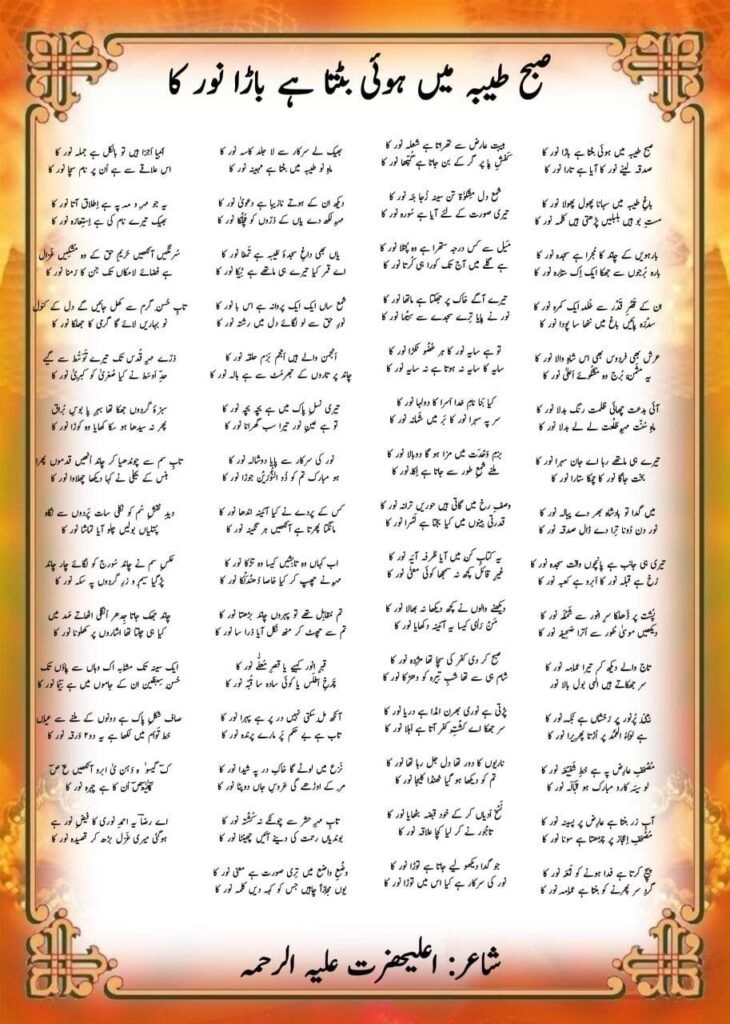 صبح طیبہ میں ہوئی بٹتا ہے باڑا نور کا
صبح طیبہ میں ہوئی بٹتا ہے باڑا نور کا
صدقہ لینے نور کا آیا ہے تارا نور کا
باغِ طیبہ میں سہانا پھول پھولا نور کا
مستِ بو ہیں بلبلیں پڑھتی ہیں کلمہ نور کا
بارہویں کے چاند کا مُجرا ہے سجدہ نور کا
بارہ بُرجوں سے جھکا ایک اِک ستارہ نور کا
ان کے قصرِ قدر سے خلد ایک کمرہ نور کا
سدرہ پائیں باغ میں ننھا سا پودا نور کا
عرش بھی فردوس بھی اس شاہِ والا نور کا
یہ مثمّن بُرج وہ مشکوئے اعلیٰ نور کا
آئی بدعت چھائی ظلمت رنگ بدلا نور کا
ماہِ سنّت مہرِ طلعت لے لے بدلا نور کا
تیرے ہی ماتھے رہا اے جان سہرا نور کا
بخت جاگا نور کا چمکا ستارا نور کا
میں گدا تو بادشاہ بھر دے پیالہ نور کا
نور دن دُونا تِرا دے ڈال صدقہ نور کا
تیری ہی جانب ہے پانچوں وقت سجدہ نور کا
رُخ ہے قبلہ نور کا اَبرو ہے کعبہ نور کا
پُشت پر ڈھلکا سرِ انور سے شملہ نور کا
دیکھیں موسیٰ طور سے اُترا صحیفہ نور کا
تاج والے دیکھ کر تیرا عمامہ نور کا
سر جھکاتے ہیں الٰہی بول بالا نور کا
بینیِ پُرنور پر رخشاں ہے بُکّہ نور کا
ہے لِوَاءُ الحَمد پر اُڑتا پھریرا نور کا
مُصحفِ عارض پہ ہے خطِ شفیعہ نور کا
لو سیہ کارو مبارک ہو قبالہ نور کا
آبِ زر بنتا ہے عارض پر پسینہ نور کا
مُصحفِ اِعجاز پر چڑھتا ہے سونا نور کا
پیچ کرتا ہے فدا ہونے کو لمعہ نور کا
گردِ سر پھرنے کو بنتا ہے عمامہ نور کا
ہیبتِ عارض سے تھرّاتا ہے شعلہ نور کا
کفشِ پا پر گر کے بن جاتا ہے گپھا نور کا
شمع دل مشکوٰۃ تن سینہ زُجاجہ نور کا
تیری صورت کے لئے آیا ہے سُورہ نور کا
مَیل سے کس درجہ ستھرا ہے وہ پتلا نور کا
ہے گلے میں آج تک کورا ہی کُرتا نور کا
تیرے آگے خاک پر جھکتا ہے ماتھا نور کا
نور نے پایا تِرے سجدے سے سیما نور کا
تو ہے سایہ نور کا ہر عُضو ٹکڑا نور کا
سایہ کا سایہ نہ ہوتا ہے نہ سایہ نور کا
کیا بنا نامِ خدا اَسرا کا دولہا نور کا
سر پہ سہرا نور کا بَر میں شہانہ نور کا
بزمِ وحدت میں مزا ہو گا دوبالا نور کا
ملنے شمعِ طور سے جاتا ہے اِکّا نور کا
وصفِ رخ میں گاتی ہیں حوریں ترانہ نور کا
قدرتی بینوں میں کیا بجتا ہے لَہرا نور کا
یہ کتابِ کُن میں آیا طُرفہ آیہ نور کا
غیرِ قائل کچھ نہ سمجھا کوئی معنیٰ نور کا
دیکھنے والوں نے کچھ دیکھا نہ بھالا نور کا
مَن رَأیٰ کیسا یہ آئینہ دکھایا نور کا
صبح کر دی کفر کی سچا تھا مژدہ نور کا
شام ہی سے تھا شبِ تیرہ کو دھڑکا نور کا
پڑتی ہے نوری بھرن امڈا ہے دریا نور کا
سر جھکا اے کشتِ کفر آتا ہے اَہلا نور کا
ناریوں کا دور تھا دل جل رہا تھا نور کا
تم کو دیکھا ہو گیا ٹھنڈا کلیجا نور کا
نسخِ ادیاں کر کے خود قبضہ بٹھایا نور کا
تاجور نے کر لیا کچا علاقہ نور کا
جو گدا دیکھو لیے جاتا ہے توڑا نور کا
نور کی سرکار ہے کیا اس میں توڑا نور کا
بھیک لے سرکار سے لا جلد کاسہ نور کا
ماہِ نو طیبہ میں بٹتا ہے مہینہ نور کا
دیکھ ان کے ہوتے نازیبا ہے دعویٰ نور کا
مہر لکھ دے یاں کے ذرّوں کو مُچلکا نور کا
یاں بھی داغِ سجدۂ طیبہ ہے تمغا نور کا
اے قمر کیا تیرے ہی ماتھے ہے ٹیکا نور کا
شمع ساں ایک ایک پروانہ ہے اس با نور کا
نورِ حق سے لو لگائے دل میں رشتہ نور کا
انجمن والے ہیں انجم بزم حلقہ نور کا
چاند پر تاروں کے جھرمٹ سے ہے ہالہ نور کا
تیری نسلِ پاک میں ہے بچہ بچہ نور کا
تو ہے عینِ نور تیرا سب گھرانا نور کا
نور کی سرکار سے پایا دوشالہ نور کا
ہو مبارک تم کو ذُو النُّورَین جوڑا نور کا
کس کے پردے نے کیا آئینہ اندھا نور کا
مانگتا پھرتا ہے آنکھیں ہر نگینہ نور کا
اب کہاں وہ تابشیں کیسا وہ تڑکا نور کا
مہر نے چھپ کر کیا خاصا دُھندلکا نور کا
تم مقابل تھے تو پہروں چاند بڑھتا نور کا
تم سے چھٹ کر منھ نکل آیا ذرا سا نور کا
قبرِ انور کہیے یا قصرِ معلّٰے نور کا
چرخِ اطلس یا کوئی سادہ سا قُبّہ نور کا
آنکھ مل سکتی نہیں در پر ہے پہرا نور کا
تاب ہے بے حکم پَر مارے پرندہ نور کا
نزع میں لوٹے گا خاکِ در پہ شیدا نور کا
مر کے اوڑھے گی عروسِ جاں دوپٹا نور کا
تابِ مہرِ حشر سے چونکے نہ کُشتہ نور کا
بوندیاں رحمت کی دینے آئیں چھینٹا نور کا
وضعِ واضع میں تِری صورت ہے معنی نور کا
یوں مجازًا چاہیں جس کو کہہ دیں کلمہ نور کا
انبیا اَجزا ہیں تو بالکل ہے جملہ نور کا
اس علاقے سے ہے اُن پر نام سچا نور کا
یہ جو مہر و مہ پہ ہے اِطلاق آتا نور کا
بھیک تیرے نام کی ہے اِستعارہ نور کا
سُرمگیں آنکھیں حریمِ حق کے وہ مشکیں غزال
ہے فضائے لامکاں تک جن کا رَمنا نور کا
تابِ حُسنِ گرم سے کھل جائیں گے دل کے کنول
نو بہاریں لائے گا گرمی کا جھلکا نور کا
ذرّے مہرِ قُدس تک تیرے توسّط سے گیے
حدِّ اوسط نے کیا صُغریٰ کو کبریٰ نور کا
سبزۂ گردوں جھکا تھا بہرِ پا بوسِ بُراق
پھر نہ سیدھا ہو سکا کھایا وہ کوڑا نور کا
تابِ سم سے چوندھیا کر چاند انھیں قدموں پھرا
ہنس کے بجلی نے کہا دیکھا چھلاوا نور کا
دیدِ نقشِ سُم کو نکلی سات پردوں سے نگاہ
پتلیاں بولیں چلو آیا تماشا نور کا
عکسِ سم نے چاند سورج کو لگائے چار چاند
پڑ گیا سیم و زرِ گردوں پہ سکہ نور کا
چاند جھک جاتا جِدھر اُنگلی اٹھاتے مہد میں
کیا ہی چلتا تھا اشاروں پر کھلونا نور کا
ایک سینہ تک مشابہ اک وہاں سے پاؤں تک
حُسنِ سبطین ان کے جاموں میں ہے نِیما نور کا
صاف شکلِ پاک ہے دونوں کے ملنے سے عیاں
خطِ توام میں لکھا ہے یہ دو ۲ ورقہ نور کا
کٓ گیسو ہٰ دہن یٰ ابرو آنکھیں عٓ صٓ
کٓھٰیٰعٓصٓ اُن کا ہے چہرہ نور کا
اے رضاؔ یہ احمدِ نوری کا فیضِ نور ہے
ہو گئی میری غزل بڑھ کر قصیدہ نور کا
شاعر: اعلیحضرت علیہ الرحمہ